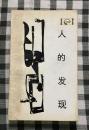 人的发现